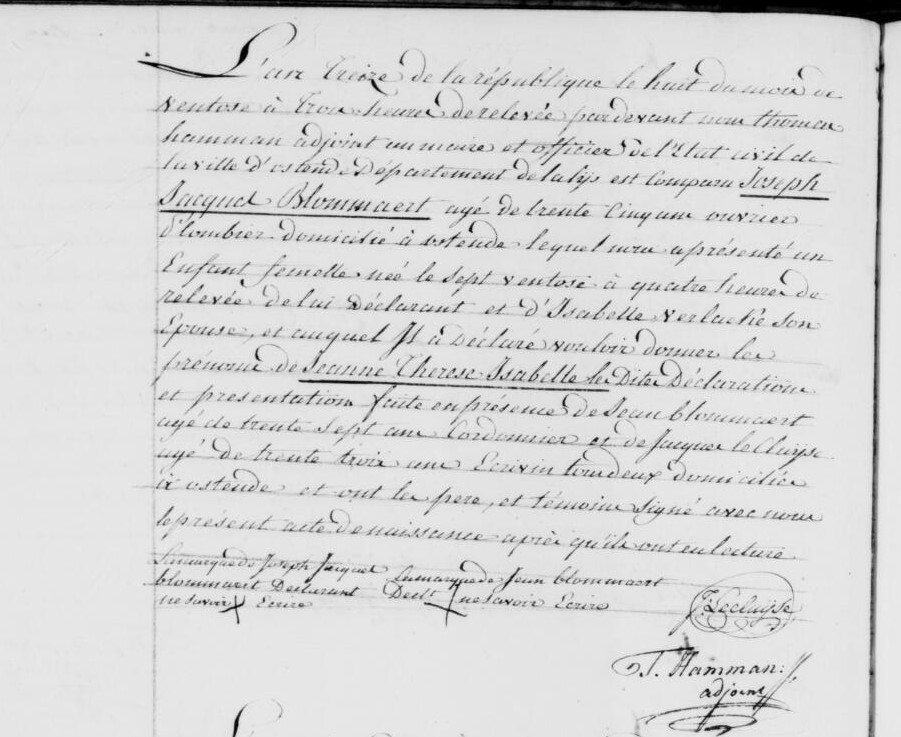 L'an Treize de la république le huit du mois de
ventose à Trois heures de relevée pardevant nous thomas
hamman adjoint au maire et officier de l'Etat civil de
la ville d'ostende Département de la lys est Comparu Joseph
Jacques Blommaert agé de trente Cinq ans ouvrier
plombier domicilié à ostende lequel nous a présenté un
Enfant femelle née le Sept ventose à quatre heures de
relevée de lui Déclarant et d'Isabelle verlache son
Epouse, et auquel Il a Déclaré vouloir donner les
prénoms de Jeanne Therese Isabelle les Dites Déclarations
et presentation faite en présence de Jean blommaert
agé de trente Sept ans Cordonnier et de Jacques le Cluyse
agé de trente trois ans Ecrivin tous deux domiciliés
à ostende et ont les pere, et témoins Signé avec nous
le présent acte de naissance après qu'ils ont eu lecture
La marque de Joseph Jacques La marque de Jean blommaert
blommaert Declarant Declt ne savoir Ecrire
ne savoir Ecrire
J: Lecluyse
T. Hamman:
adjoint